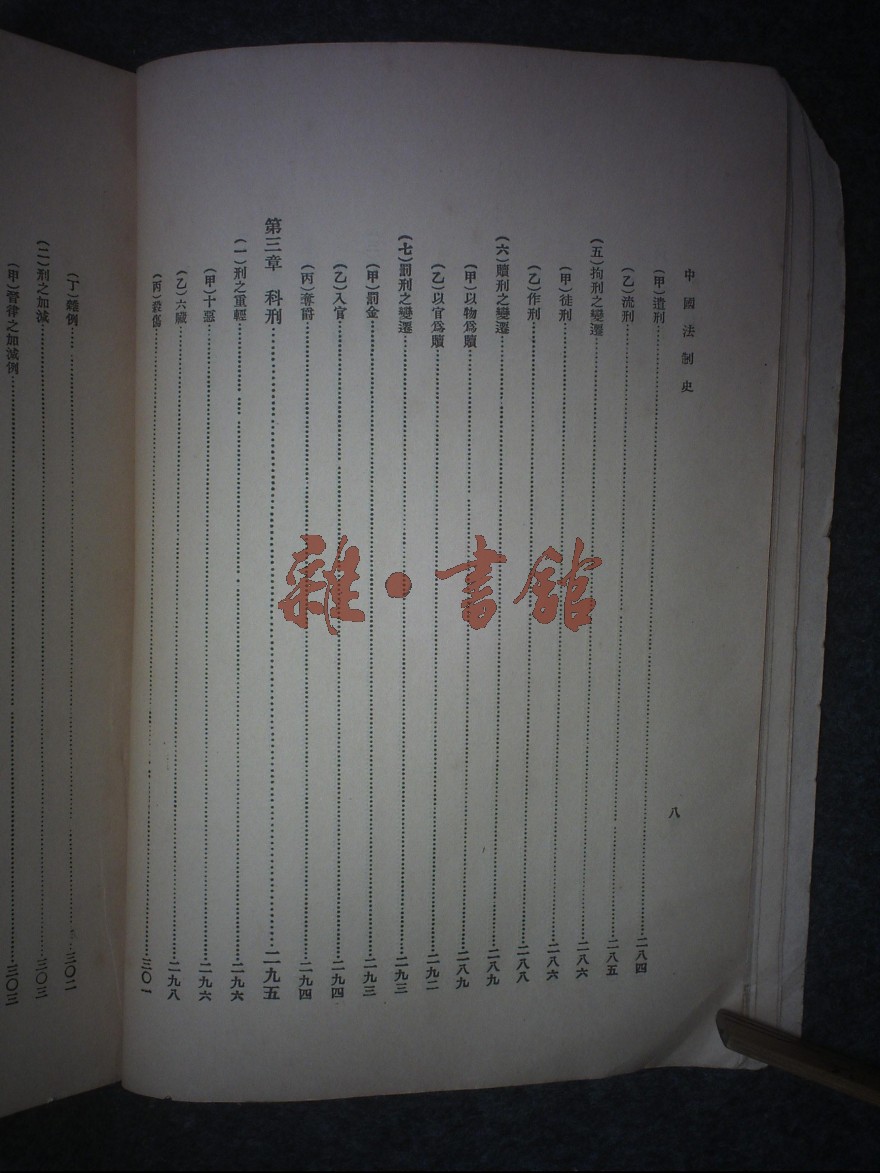 中國法制史
八
(甲)遣刑……二八四
(乙)流刑……二八五
(五)拘刑之變遷……二八六
(甲)徒刑……二八六
(乙)作刑……二八八
(六)贖刑之變遷……二八九
(甲)以物爲贖……二八九
(乙)以官爲贖……二九二
(七)罰刑之變遷……二九三
(甲)罰金……二九三
(乙)入官……二九四
(丙)奪爵……二九四
第三章 科刑……二九五
(一)刑之重輕……二九六
(甲)十惡……二九六
(乙)六贓……二九八
(丙)殺傷……三〇一
(丁)雜例……三〇二
(二)刑之加減……三〇三
(甲)晉律之加減例……三〇三
雜·書館